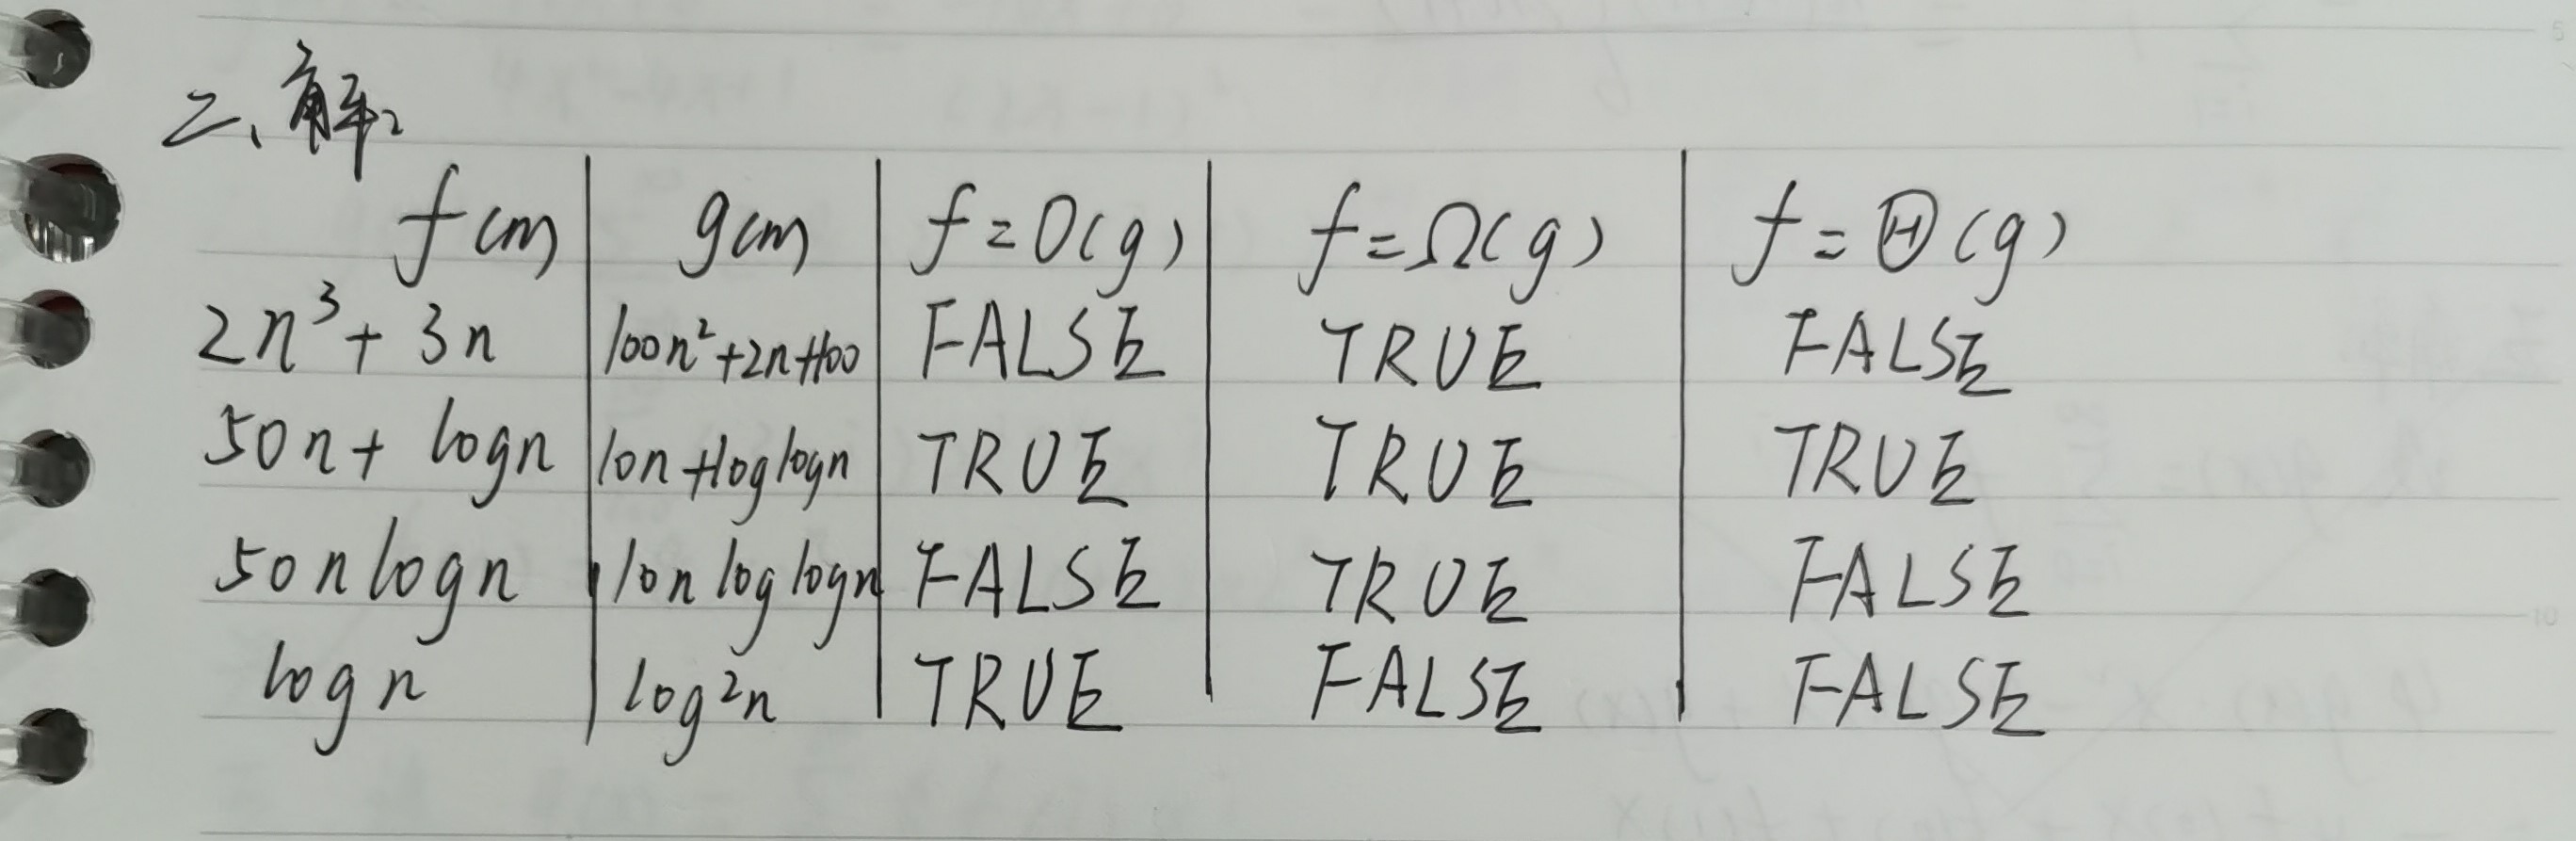 二、解：
f(n) g(n) f=O(g) f=Ω(g) f=Θ(g)
2n³+3n 100n²+2n+100 FALSE TRUE FALSE
50n+logn 10n+loglogn TRUE TRUE TRUE
50nlogn 10nloglogn FALSE TRUE FALSE
logn log²n TRUE FALSE FALSE